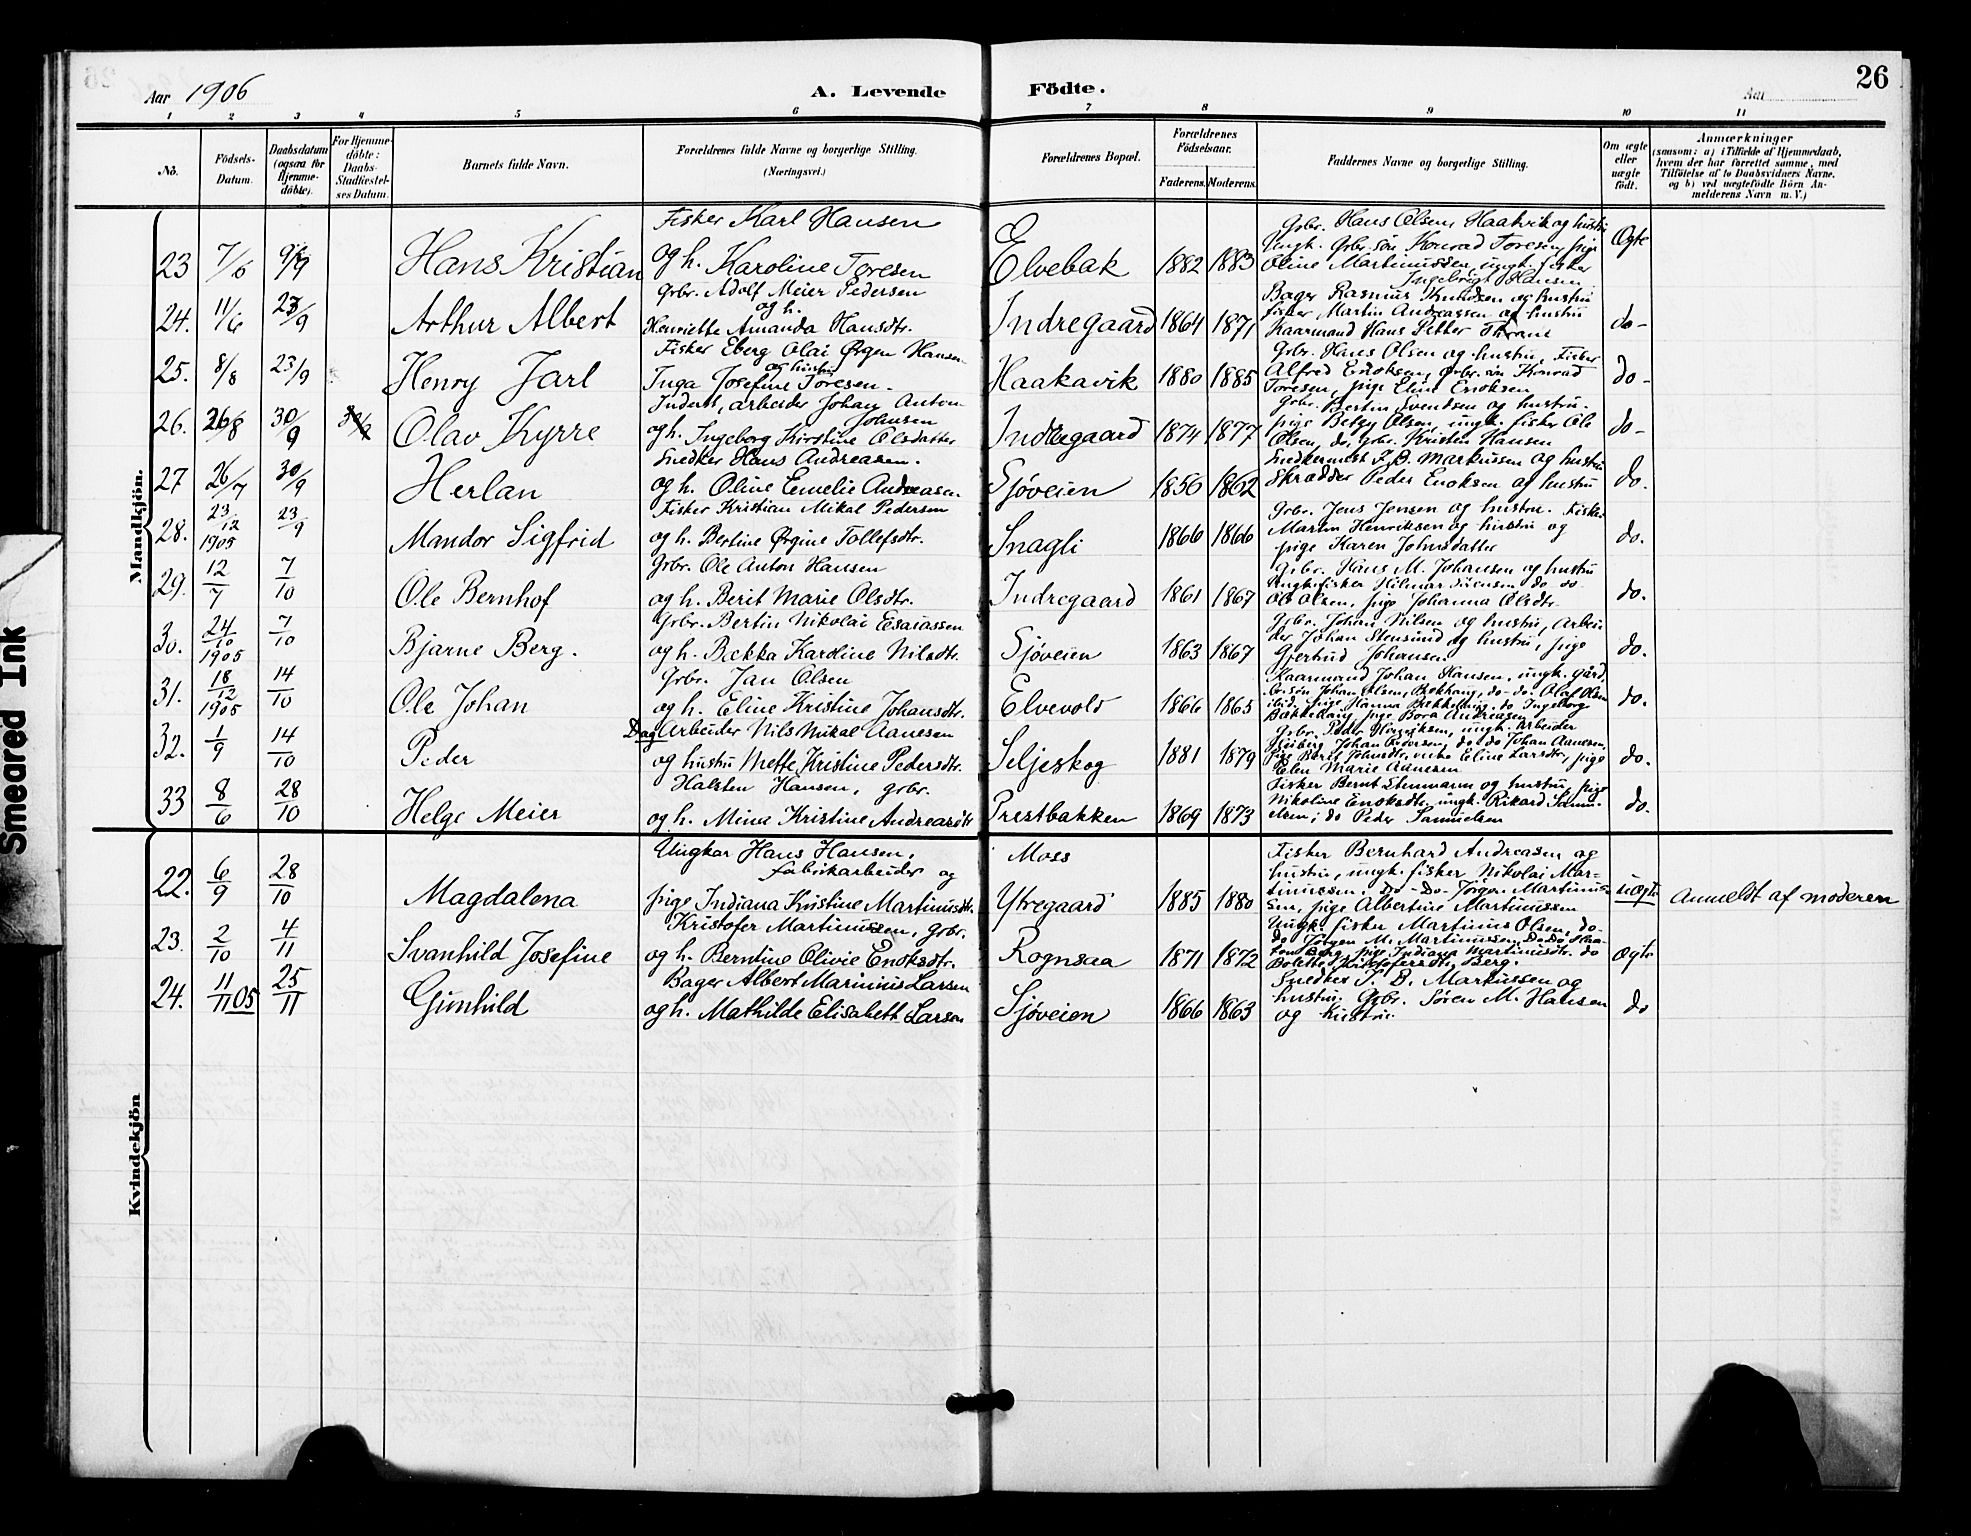 26
Aar 1906
A. Levende Födte.
Aar
1 2 3 4 5 6 7 8 9 10 11
No.
Födsels-Datum.
Daabsdatum (ogsaa for Hjemme-döbte).
For Hjemme-döbte: Daabs-Stadfæstel-ses Datum.
Barnets fulde Navn.
Forældrenes fulde Navne og borgerlige Stilling. (Næringsvei.)
Forældrenes Bopæl.
Forældrenes Födselsaar.
Faderens. Moderens.
Faddernes Navne og borgerlige Stilling.
Om ægte eller uægte födt.
Anmærkninger
(saasom: a) i Tilfælde af Hjemmedaab,
hvem der har forrettet samme, med
Tilföielse af to Daabsvidners Navne.
og b) ved uægtefödte Börn An-
melderens Navn m. V.)
Mandkjön.
23 7/6 9/9 Hans Kristian
Fisker Karl Hansen
og h. Karoline Toresen
Elvebak 1882 1883
Grbr. Hans Olsen Haakvik og hustru
Ungk. Grbr. søn Konrad Toresen, pige
Oline Martinussen, ungk. fisker
Ingebrigt Hansen
Ægte
24. 11/6 23/9 Arthur Albert
Grbr. Adolf Meier Pedersen
og h.
Henriette Amanda Hansdtr.
Indregaard 1864 1871
Bager Rasmus Knudsen og hustru
fisker Martin Andreassen og hustru
Kaarmand Hans Petter Thrane
do-
25. 8/8 23/9 Henry Jarl
Fisker Eberg Olai Ørgen Hansen
og hustru
Inga Josefine Toresen.
Haakavik 1880 1885
Grbr. Hans Olsen og hustru, Fisker
Alfred Enoksen, grbr. søn Konrad
Toresen, pige Eline Enoksen
do-
26. 26/8 30/9 Olav Kyrre
Inderst, arbeider Johan Anton
Johansen
og h. Ingeborg Kirstine Olsdatter
Indregaard 1874 1877
Grbr. Bertin Svendsen og hustru.
pige Betzy Olsen, ungk. fisker Ole
Olsen, do, grbr. Kristen Hansen
do-
27 26/7 30/9 Herlan
Snedker Hans Andreasen.
og h. Oline Emelie Andreasen.
Sjøveien 1856 1862
Snedkermest. J. B. Markussen og hustru
Skrædder Peder Enoksen og hustru
do.
28. 23/12 1905 23/9 Mandor Sigfrid
Fisker Kristian Mikal Pedersen
og h. Bertine Ørgine Tollefsdtr.
Snagli 1866 1866
Grbr. Jens Jensen og hustru. Fisker
Martin Henriksen og hustru og
pige Karen Johnsdatter
do.
29. 12/7 7/10 Ole Bernhof
Grbr. Ole Anton Hansen
og h. Berit Marie Olsdtr.
Indregaard 1861 1867
Grbr. Hans M. Johansen og hustru
Ungk. fisker Hilmar Sørensen do do
Ole Olsen, pige Johanna Olsdtr.
do.
30. 24/10 1905 7/10 Bjarne Berg.
Grbr. Bertin Nikolai Esaiassen
og h. Bækka Karoline Nilsdtr.
Sjøveien 1863 1867
Grbr. Johan Nilsen og hustru, Arbei-
der Johan Stensund og hustru, pige
Gjertrud Johansen
do.
31. 18/12 1905 14/10 Ole Johan
Grbr. Jan Olsen
og h. Eline Kristine Johansdtr.
Elvevold 1866 1865
Kaarmand Johan Hansen, ungk. gård
br. søn Johan Olsen, Bækhaug, do-do. Olaf Olsen
ibid., pige Hanna Bækkehaug, do Ingeborg
Bakkehaug, pige Bora Andreasen
do.
32. 1/9 14/10 Peder
Dag Arbeider Nils Mikal Aanesen
og hustru Mette Kristine Pedersdtr.
Seljeskog 1881 1879
Grbr. Peder Henriksen, ungk. arbeider
Johan Pedersen, do do Johan Aanesen,
pige Berit Johnsdtr., enke Eline Larsdtr., pige
Elen Marie Aanesen
do.
33 8/6 28/10 Helge Meier
Halsten Hansen, grbr.
og h. Mina Kristine Andreasdtr
Prestbakken 1869 1873
Fisker Bernt Stenmann og hustru, pige
Nikoline Enoksdtr, ungk. Rikard Samu-
elsen; do Peder Samuelsen
do.
Kvindekjön
22. 6/9 28/10 Magdalena
Ungkar Hans Hansen,
fabrikarbeider og
pige Indiana Kristine Martinusdtr.
Moss
Ytregaard 1885 1880
Fisker Bernhard Andreasen og
hustru, ungk. fisker Nikolai Mar-
tinussen, Do-Do-Jørgen Martinus-
sen, pige Albertine Martinussen
uægte
Anmeldt af moderen
23. 2/10 4/11 Svanhild Josefine
Kristofer Martinussen, grbr.
og h. Berntine Olivie Enoksdtr.
Rognsaa 1871 1872
Ungk. fisker Martinus Olsen, do-
do Jørgen M. Martinussen, Do Do
Berg, pige Indiana Martinusdtr. do
Bolette Kristofersdtr. Berg.
Ægte
24. 11/11 05 25/11 Gunhild
Bager Albert Marinius Larsen
og h. Mathilde Elisabeth Larsen
Sjøveien 1866 1863
Snedker J. B. Markussen og
hustru. Grbr. Søren M. Hansen
og hustru.
do
Smeared Ink